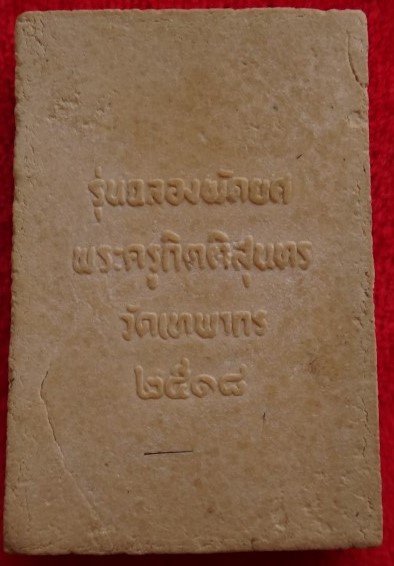 รุ่นฉลองพัดยศ
พระครูกิตติสุนทร
วัดเทพากร
๒๕๑๘